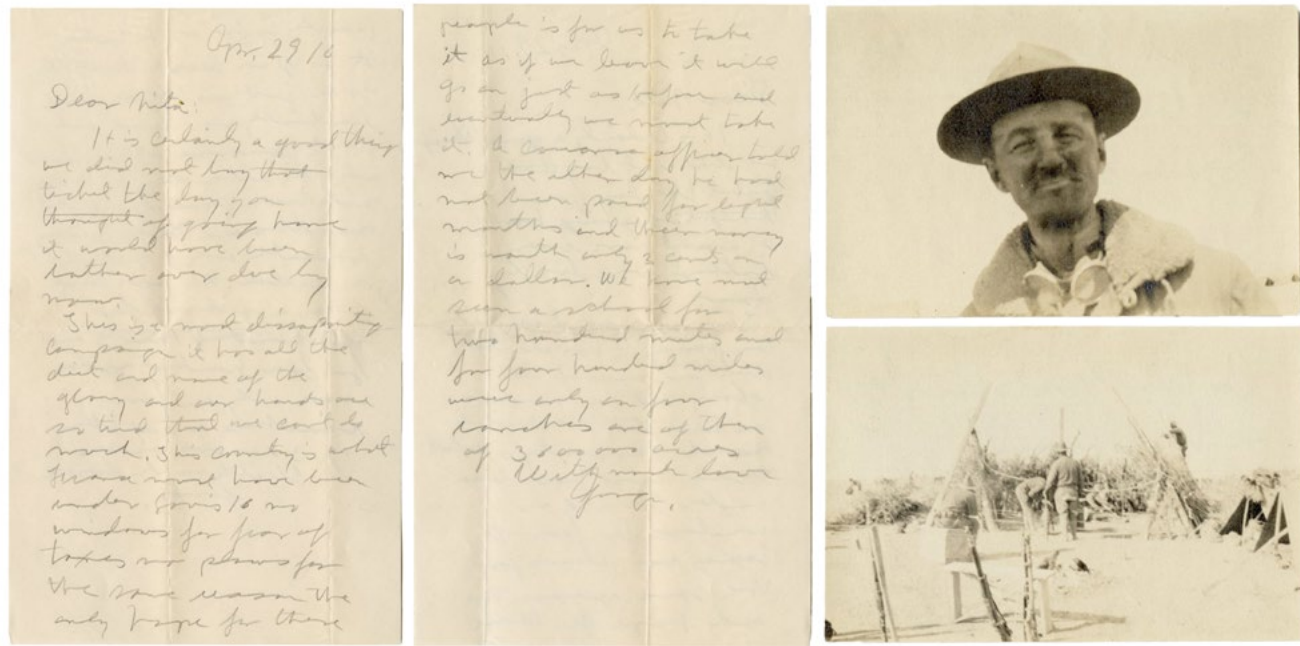 Apr. 29 16
Dear Nita:
It is certainly a good thing
we did not buy that
ticket the day you
thought of going home
it would have been
rather over due by
now.
This is a most dissapointing
campaign it has all the
dirt and none of the
glory and our hands are
so tied that we cant do
much. This country is what
France must have been
under Louis 16 no
windows for fear of
taxes no plows for
the same reason the
only hope for these
people is for us to take
it as if we leave it will
go on just as before and
eventually we must take
it. A officer told
me the other day he had
not been paid for eight
months and their money
is worth only 2 cents on
a dollar. We have not
seen a school for
two hundred miles and
for four hundred miles
were only on four
ranches one of them
of 3000000 acres
With much love
George.